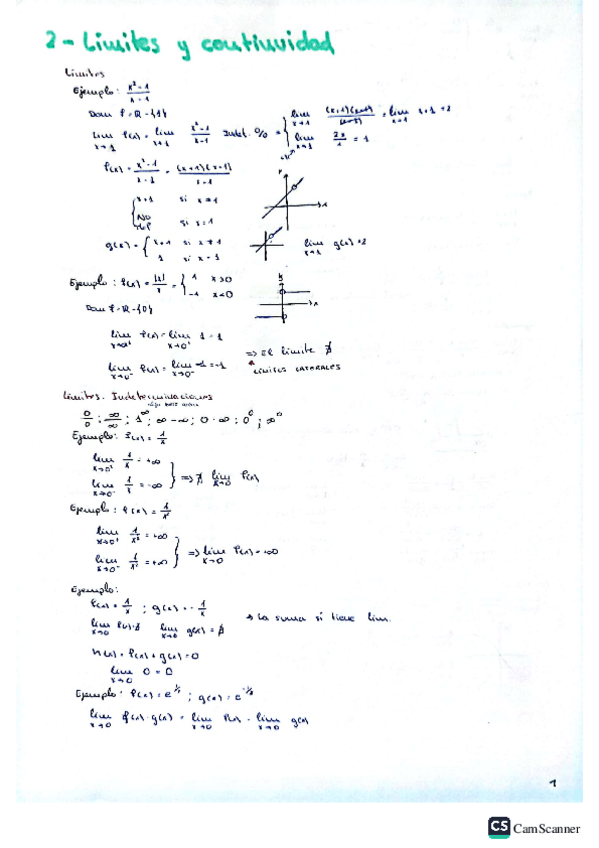 2 - Límites y continuidad
Límites
Ejemplo: x²-1 / x-1
Dom f = R - {1}
lim x→1 f(x) = lim x→1 x²-1 / x-1 Indet. 0/0 = { lim x→1 (x+1)(x-1) / (x-1) = lim x→1 x+1 = 2
lim x→1 2x / 1 = 1
f(x) = x²-1 / x-1 = (x+1)(x-1) / x-1
{ x+1 si x≠1
No si x=1
g(x) = { x+1 si x≠1
1 si x=1
lim x→1 g(x) = 2
Ejemplo: f(x) = |x| / x = { 1 x>0
-1 x<0
Dom f = R - {0}
lim x→0⁺ f(x) = lim x→0⁺ 1 = 1
lim x→0⁻ f(x) = lim x→0⁻ -1 = -1
=> El límite ∄
LÍMITES LATERALES
Límites. Indeterminaciones
0/0 ; ∞/∞ ; 1^∞ ; ∞-∞ ; 0·∞ ; 0⁰ ; ∞⁰
Ejemplo: f(x) = 1/x
lim x→0⁺ 1/x = +∞
lim x→0⁻ 1/x = -∞
} => ∄ lim x→0 f(x)
Ejemplo: f(x) = 1/x²
lim x→0⁺ 1/x² = +∞
lim x→0⁻ 1/x² = +∞
} => lim x→0 f(x) = +∞
Ejemplo:
f(x) = 1/x ; g(x) = - 1/x
lim x→0 f(x) ∄ lim x→0 g(x) = ∄
→ La suma sí tiene lim.
h(x) = f(x) + g(x) = 0
lim x→0 0 = 0
Ejemplo: f(x) = e^1/x ; g(x) = e^-1/x
lim x→0 f(x) · g(x) = lim x→0 f(x) · lim x→0 g(x)
1
CS CamScanner